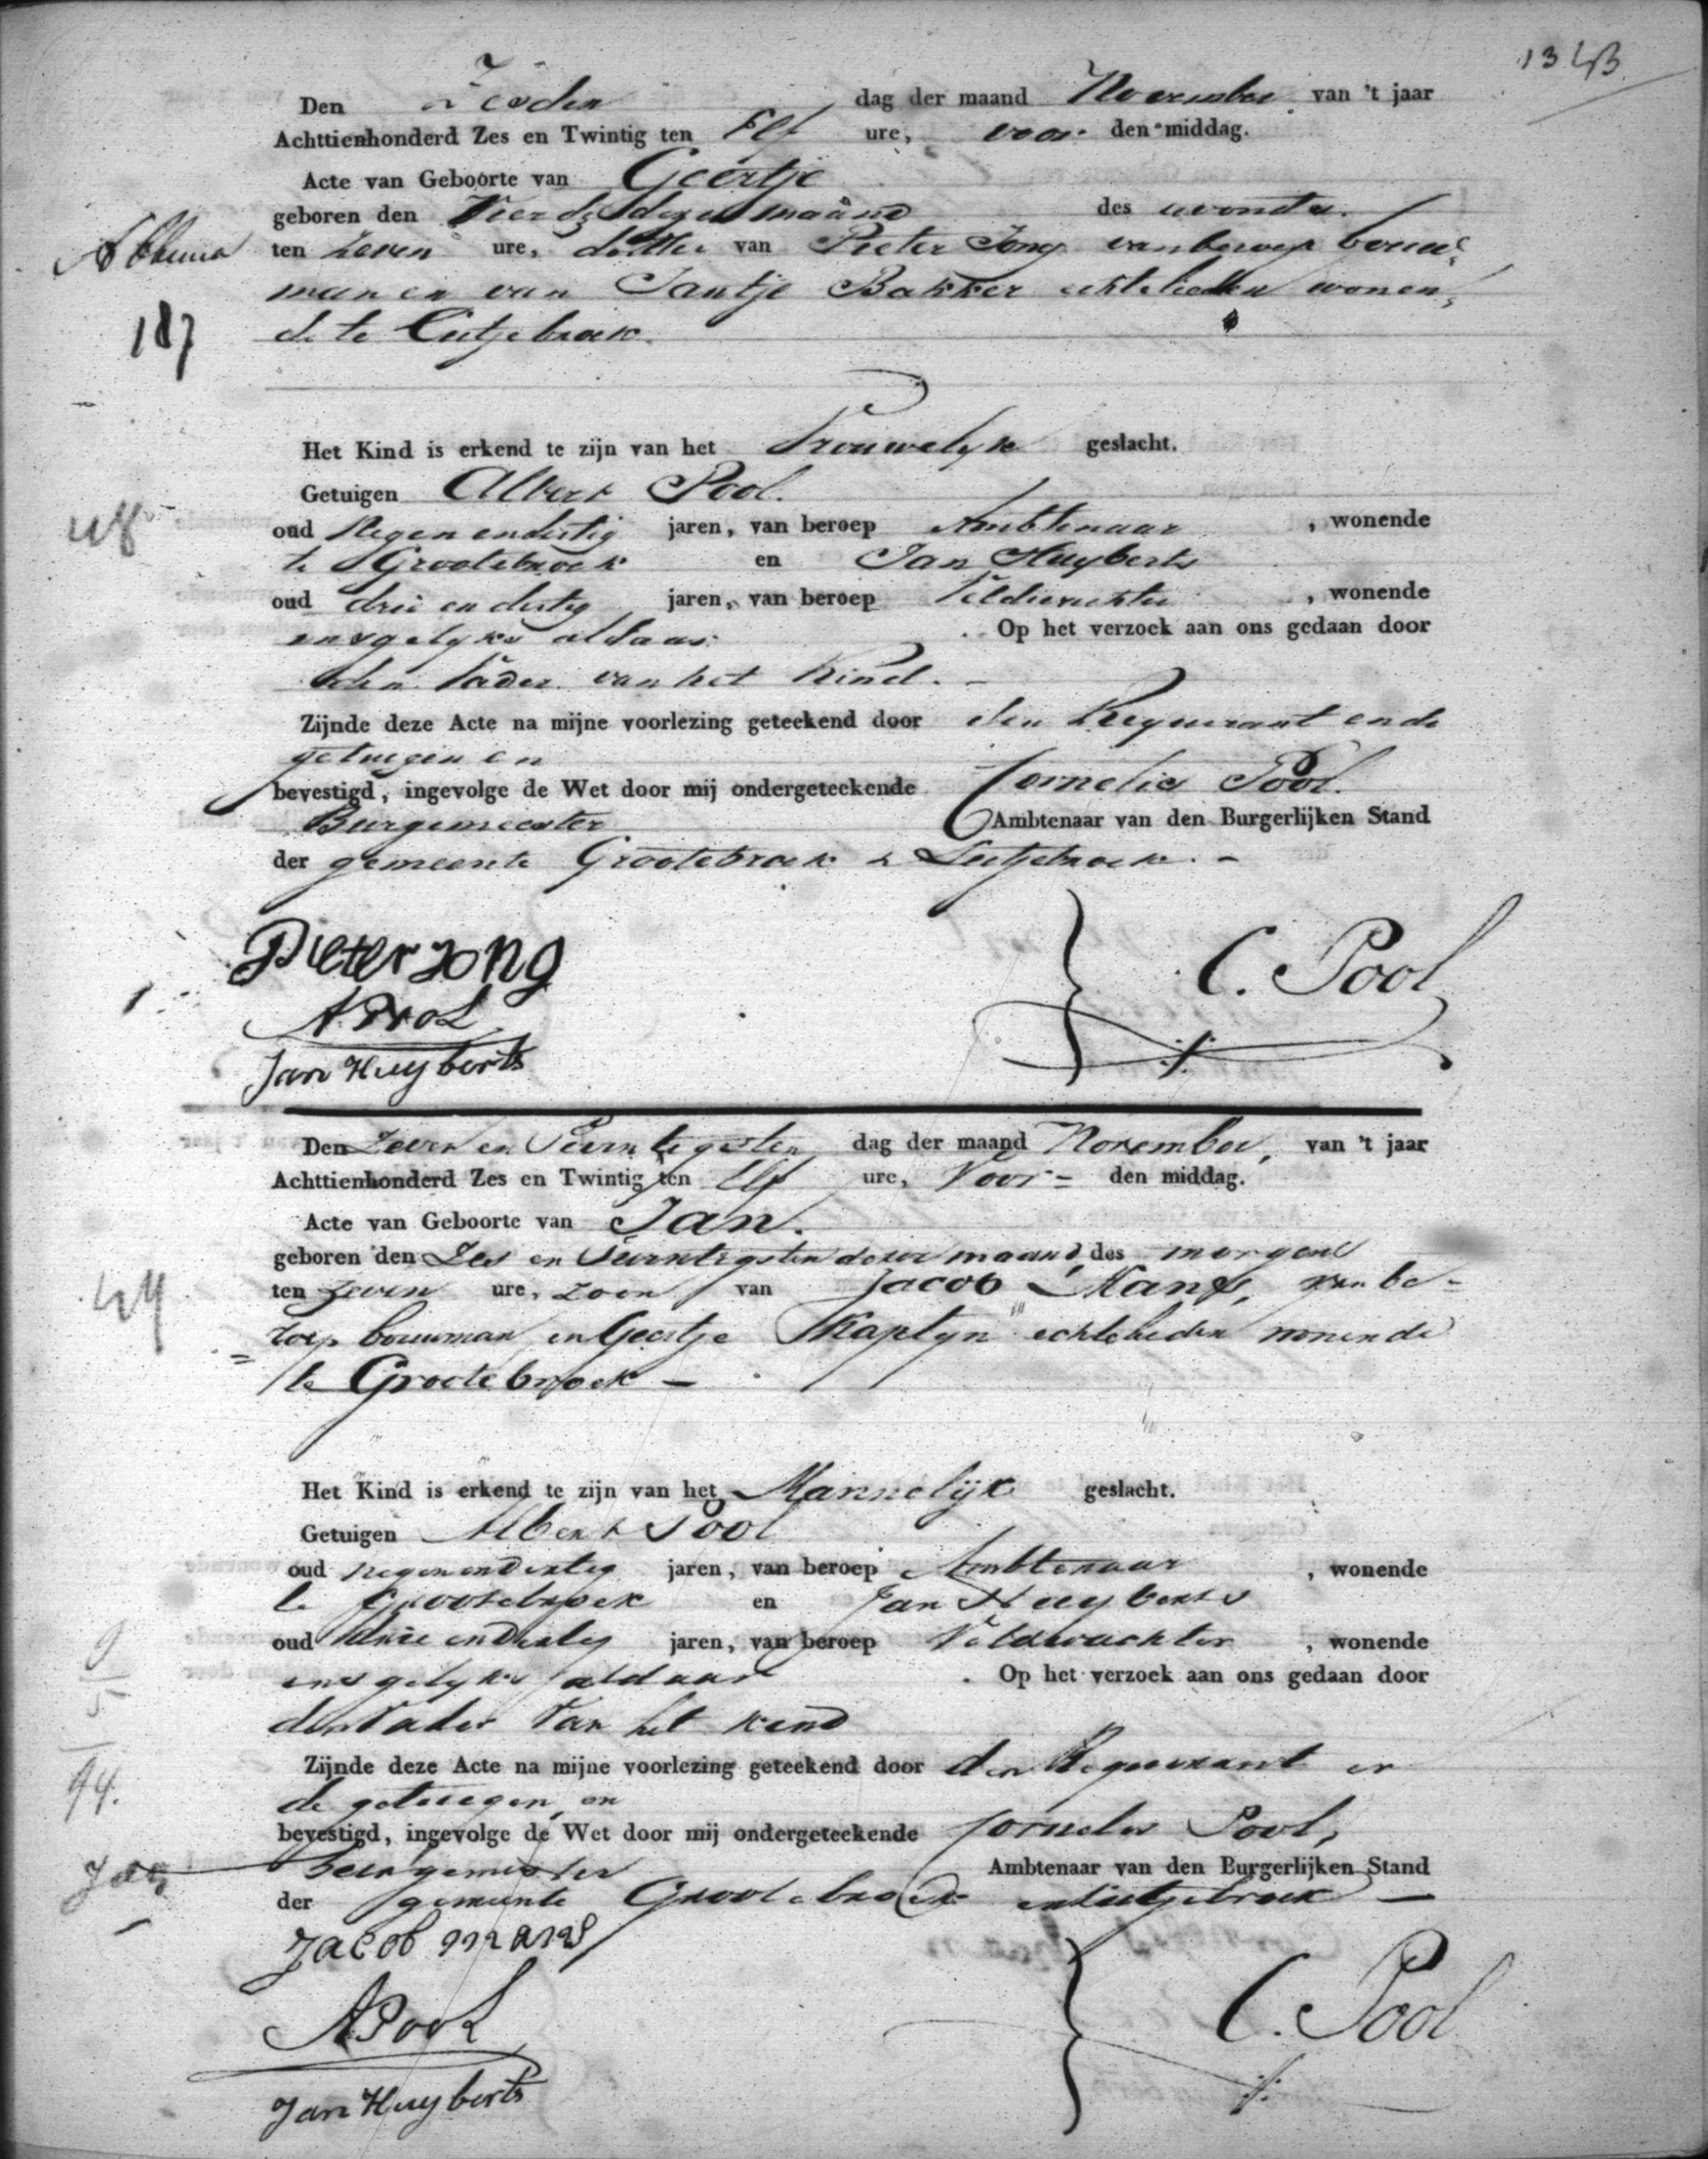 13
Den Zesden dag der maand November van 't jaar
Achttienhonderd Zes en Twintig ten Elf ure, voor den middag.
Acte van Geboorte van Geertje
geboren den Vierde dezer maand des avonds
ten zeven ure, dochter van Pieter Jong van beroep bouw
man en van Jantje Bakker echtelieden wonen,
de te Lutjebroek.
187
Het Kind is erkend te zijn van het Vrouwelyk geslacht.
Getuigen Albert Pool.
oud Negen en dertig jaren, van beroep Ambtenaar, wonende
te Grootebroek en Jan Huyberts
oud drie en dertig jaren, van beroep Veldwachter, wonende
insgelyks aldaar. Op het verzoek aan ons gedaan door
den Vader van het Kind.
Zijnde deze Acte na mijne voorlezing geteekend door den Requirant en de
getuigen en
bevestigd, ingevolge de Wet door mij ondergeteekende Cornelis Pool.
Burgemeester Ambtenaar van den Burgerlijken Stand
der gemeente Grootebroek & Lutjebroek. -
Pieter Jong
A Pool
Jan Huyberts
C. Pool
Den Zeven en Twintigsten dag der maand November, van 't jaar
Achttienhonderd Zes en Twintig ten Elf ure, Voor- den middag.
Acte van Geboorte van Jan.
geboren den Zes en Twintigsten dezer maand, des morgens
ten zeven ure, zoon van Jacob Mans, van be-
roep bouwman en Geertje Kaptyn echtelieden wonende
te Grootebroek -
Het Kind is erkend te zijn van het Mannelijk geslacht.
Getuigen Albert Pool
oud negen en dertig jaren, van beroep Ambtenaar, wonende
te Grootebroek en Jan Huyberts
oud drie en dertig jaren, van beroep Veldwachter, wonende
insgelyks aldaar. Op het verzoek aan ons gedaan door
den Vader van het kind
Zijnde deze Acte na mijne voorlezing geteekend door den Requirant en
de getuigen, en
bevestigd, ingevolge de Wet door mij ondergeteekende Cornelis Pool,
burgemeester Ambtenaar van den Burgerlijken Stand
der gemeente Grootebroek en Lutjebroek -
Jacob Mans
A Pool
Jan Huyberts
C. Pool